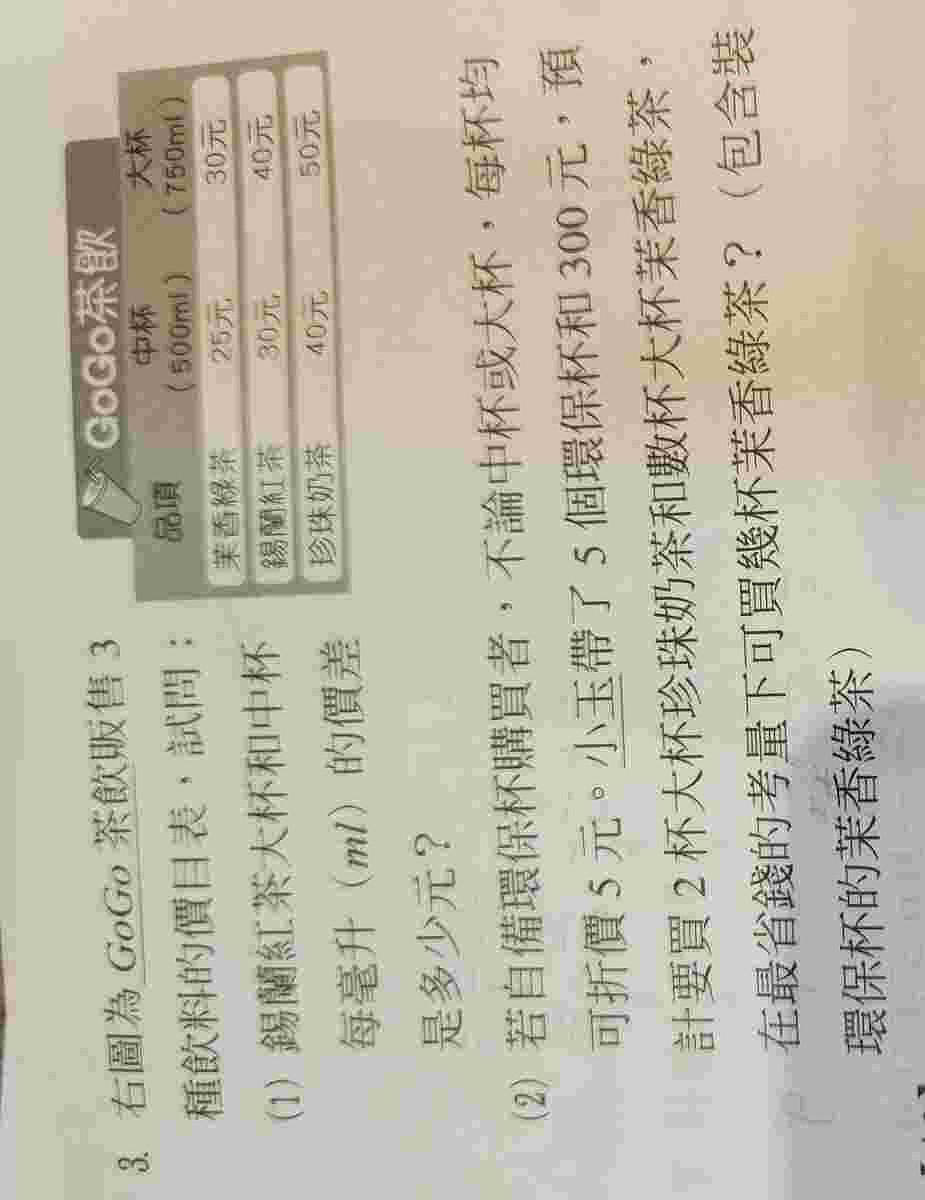 3. 右圖為 GoGo 茶飲販售 3
種飲料的價目表，試問：
(1) 錫蘭紅茶大杯和中杯
每毫升（ml）的價差
是多少元？
GoGo茶飲
品項 中杯 (500ml) 大杯 (750ml)
茉香綠茶 25元 30元
錫蘭紅茶 30元 40元
珍珠奶茶 40元 50元
(2) 若自備環保杯購買者，不論中杯或大杯，每杯均
可折價 5 元。小玉帶了 5 個環保杯和 300 元，預
計要買 2 杯大杯珍珠奶茶和數杯大杯茉香綠茶，
在最省錢的考量下可買幾杯茉香綠茶？（包含裝
環保杯的茉香綠茶）